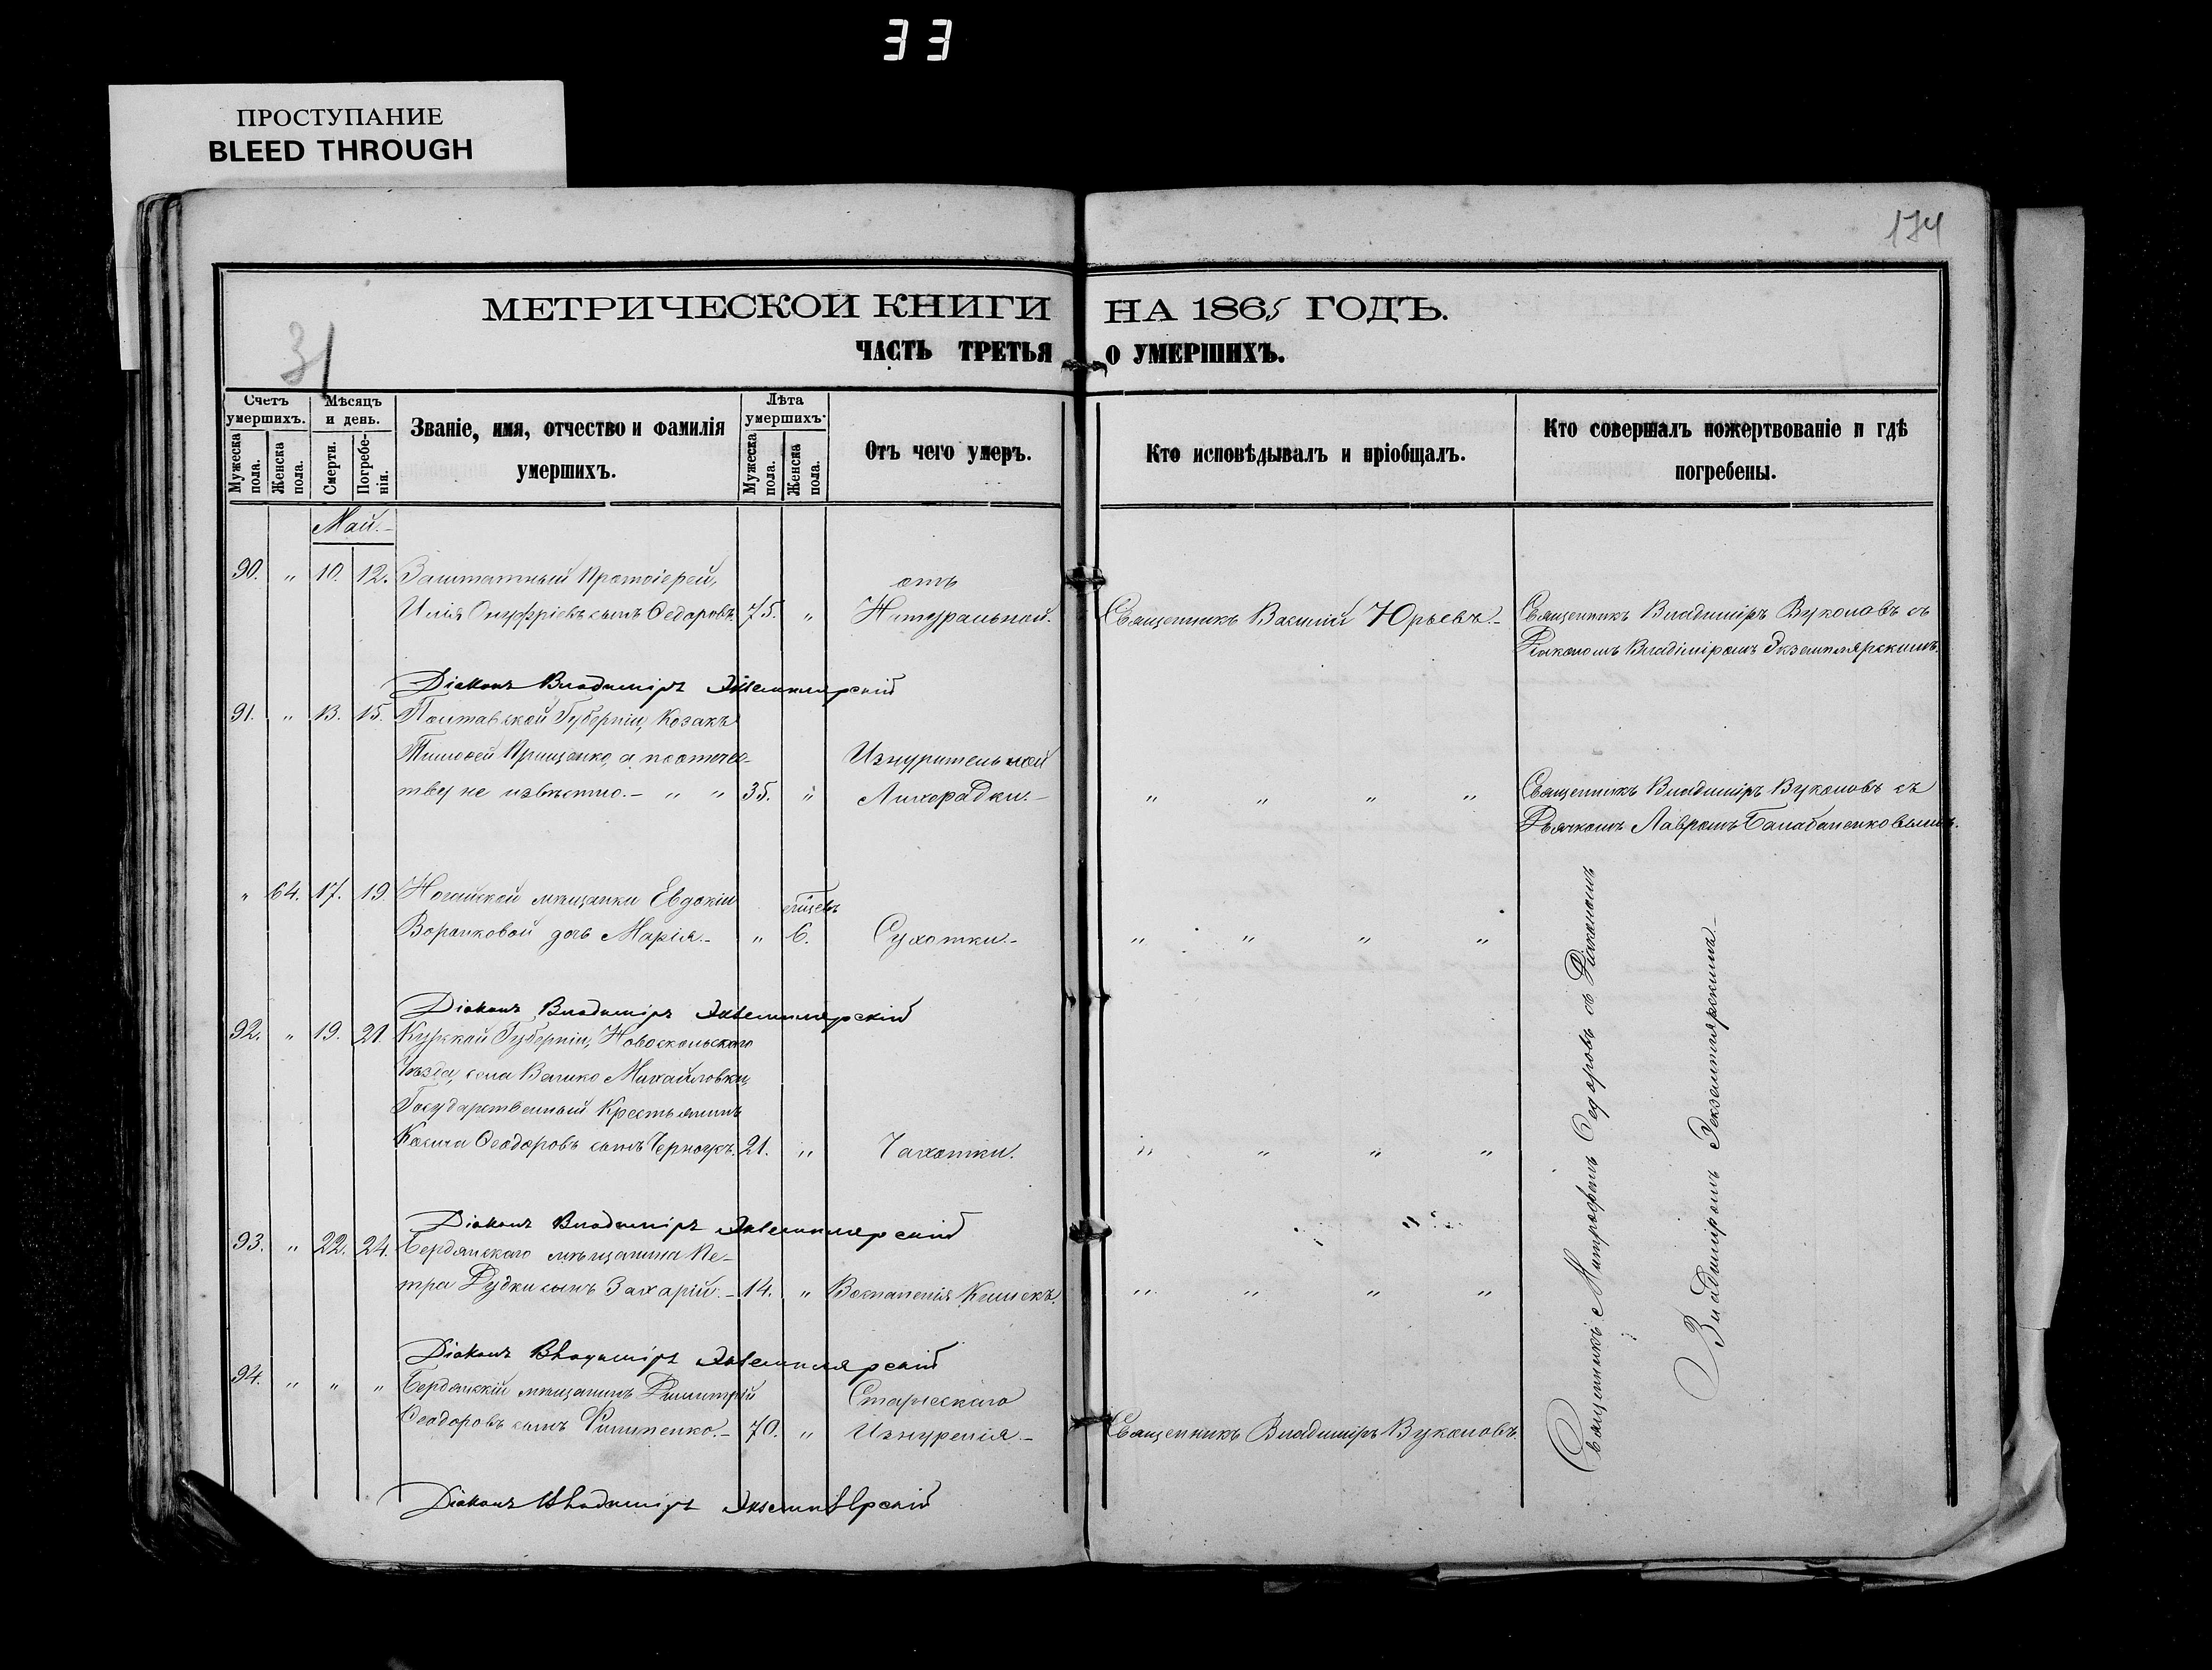 33
ПРОСТУПАНИЕ
BLEED THROUGH
174
31
МЕТРИЧЕСКОЙ КНИГИ НА 1865 ГОДЪ.
ЧАСТЬ ТРЕТЬЯ О УМЕРШИХЪ.
Счетъ умершихъ.
Мужеска пола.
Женска пола.
Мѣсяцъ и день.
Смерти.
Погребенія.
Званіе, имя, отчество и фамилія умершихъ.
Лѣта умершихъ.
Мужеска пола.
Женска пола.
Отъ чего умеръ.
Кто исповѣдывалъ и пріобщалъ.
Кто совершалъ пожертвованіе и гдѣ погребены.
Май.-
90. " 10. 12. Заштатный Протоіерей, отъ
Илія Онуфріевъ сынъ Федоровъ. 75. " Натуральной. Священникъ Василій Юрьевъ.- Священникъ Владиміръ Вуколовъ съ
Діакономъ Владіміромъ Экземплярскимъ.
Діаконъ Владиміръ Экземплярскій
91. " 13. 15. Полтавской Губерніи, Козакъ
Тимофей Прищенко, а по отече- Изнурительной
тву не извѣстно.- " " 35. " Лихорадки.- " " " " Священникъ Владиміръ Вуколовъ съ
Дьячкомъ Лавромъ Балабаненковымъ.
" 64. 17. 19. Ногайской мѣщанки Евдокіи
Воронковой дочь Марія.- " 6. Сухотки.- " " " "
Діаконъ Владиміръ Экземплярскій
92. " 19. 21. Курской Губерніи, Новоскольскаго
Уѣзда, села Велико Михайловки,
Государственный Крестьянинъ
Косма Феодоровъ сынъ 21. " Чахотки. " " " "
Діаконъ Владиміръ Экземплярскій
93. " 22. 24. Бердянскаго мѣщанина Пе-
тра Дудки сынъ Захарій.- 14. " Воспаленія Кишекъ. " " " "
Діаконъ Владиміръ Экземплярскій
94. " " " Бердянскій мѣщанинъ Димитрій Старческаго
Феодоровъ сынъ Филипенко.- 70. " Изнуренія.- Священникъ Владиміръ Вуколовъ.
Діаконъ Владиміръ Экземплярскій
Священникъ Митрофанъ Федоровъ съ Діакономъ
Владиміромъ Экземплярскимъ.-